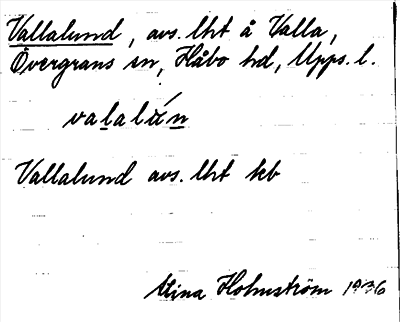 Vallalund, avs. lht å Valla,
Övergrans sn, Håbo hd, Upps. l.
valalún
Vallalund avs. lht kb
Stina Holmström 1936